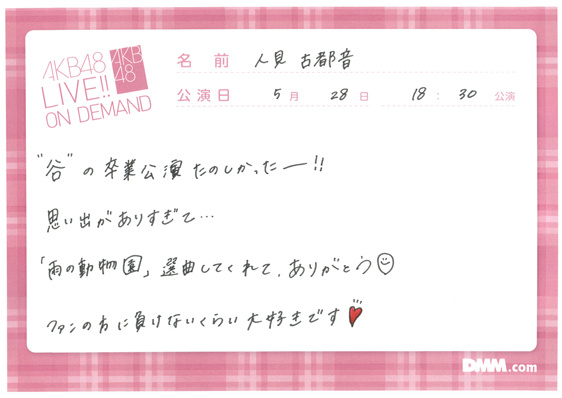 AKB48
LIVE!!
ON DEMAND
AKB
48
名前 人見 古都音
公演日 5月 28日 18:30 公演
"谷"の卒業公演たのしかったー!!
思い出がありすぎて…
「雨の動物園」選曲してくれて、ありがとう
ファンの方に負けないくらい大好きです
DMM.com